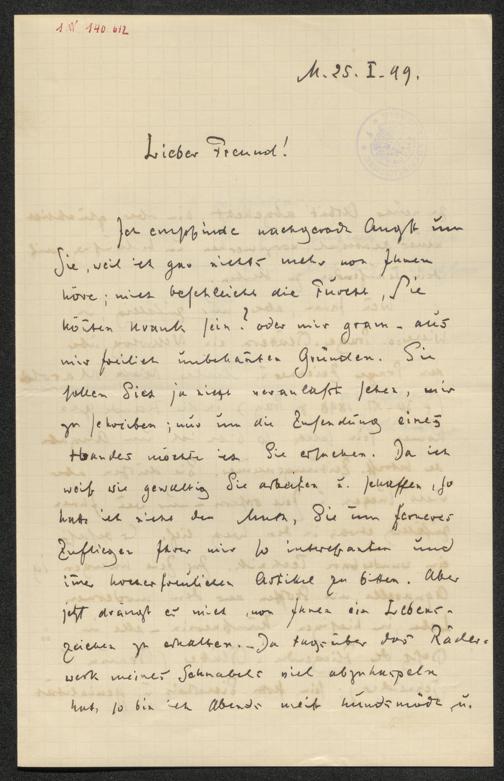 I.N. 140.612
M. 25. I. 99.
Lieber Freund!
Ich empfinde nachgerade Angst um
Sie, weil ich gar nichts mehr von Ihnen
höre; mich beschleicht die Furcht, Sie
könten krank sein? oder mir gram – aus
mir freilich unbekañten Gründen. Sie
sollen Sich ja nicht veranlaßt sehen, mir
zu schreiben; nur um die Zusendung eines
Bandes möchte ich Sie ersuchen. Da ich
weiß wie gewaltig Sie arbeiten u. schaffen, so
hatte ich nicht den Muth, Sie um ferneres
Zufliegen Ihrer mir so interessanten und
im̄er hocherfreulichen Artikel zu bitten. Aber
jetzt drängt es mich, von Ihnen ein Lebens-
zeichen zu erhalten. – Da tagsüber das Räder-
werk meines Schnabels viel abzuhaspeln
hat, so bin ich Abends meist hundsmüde u.